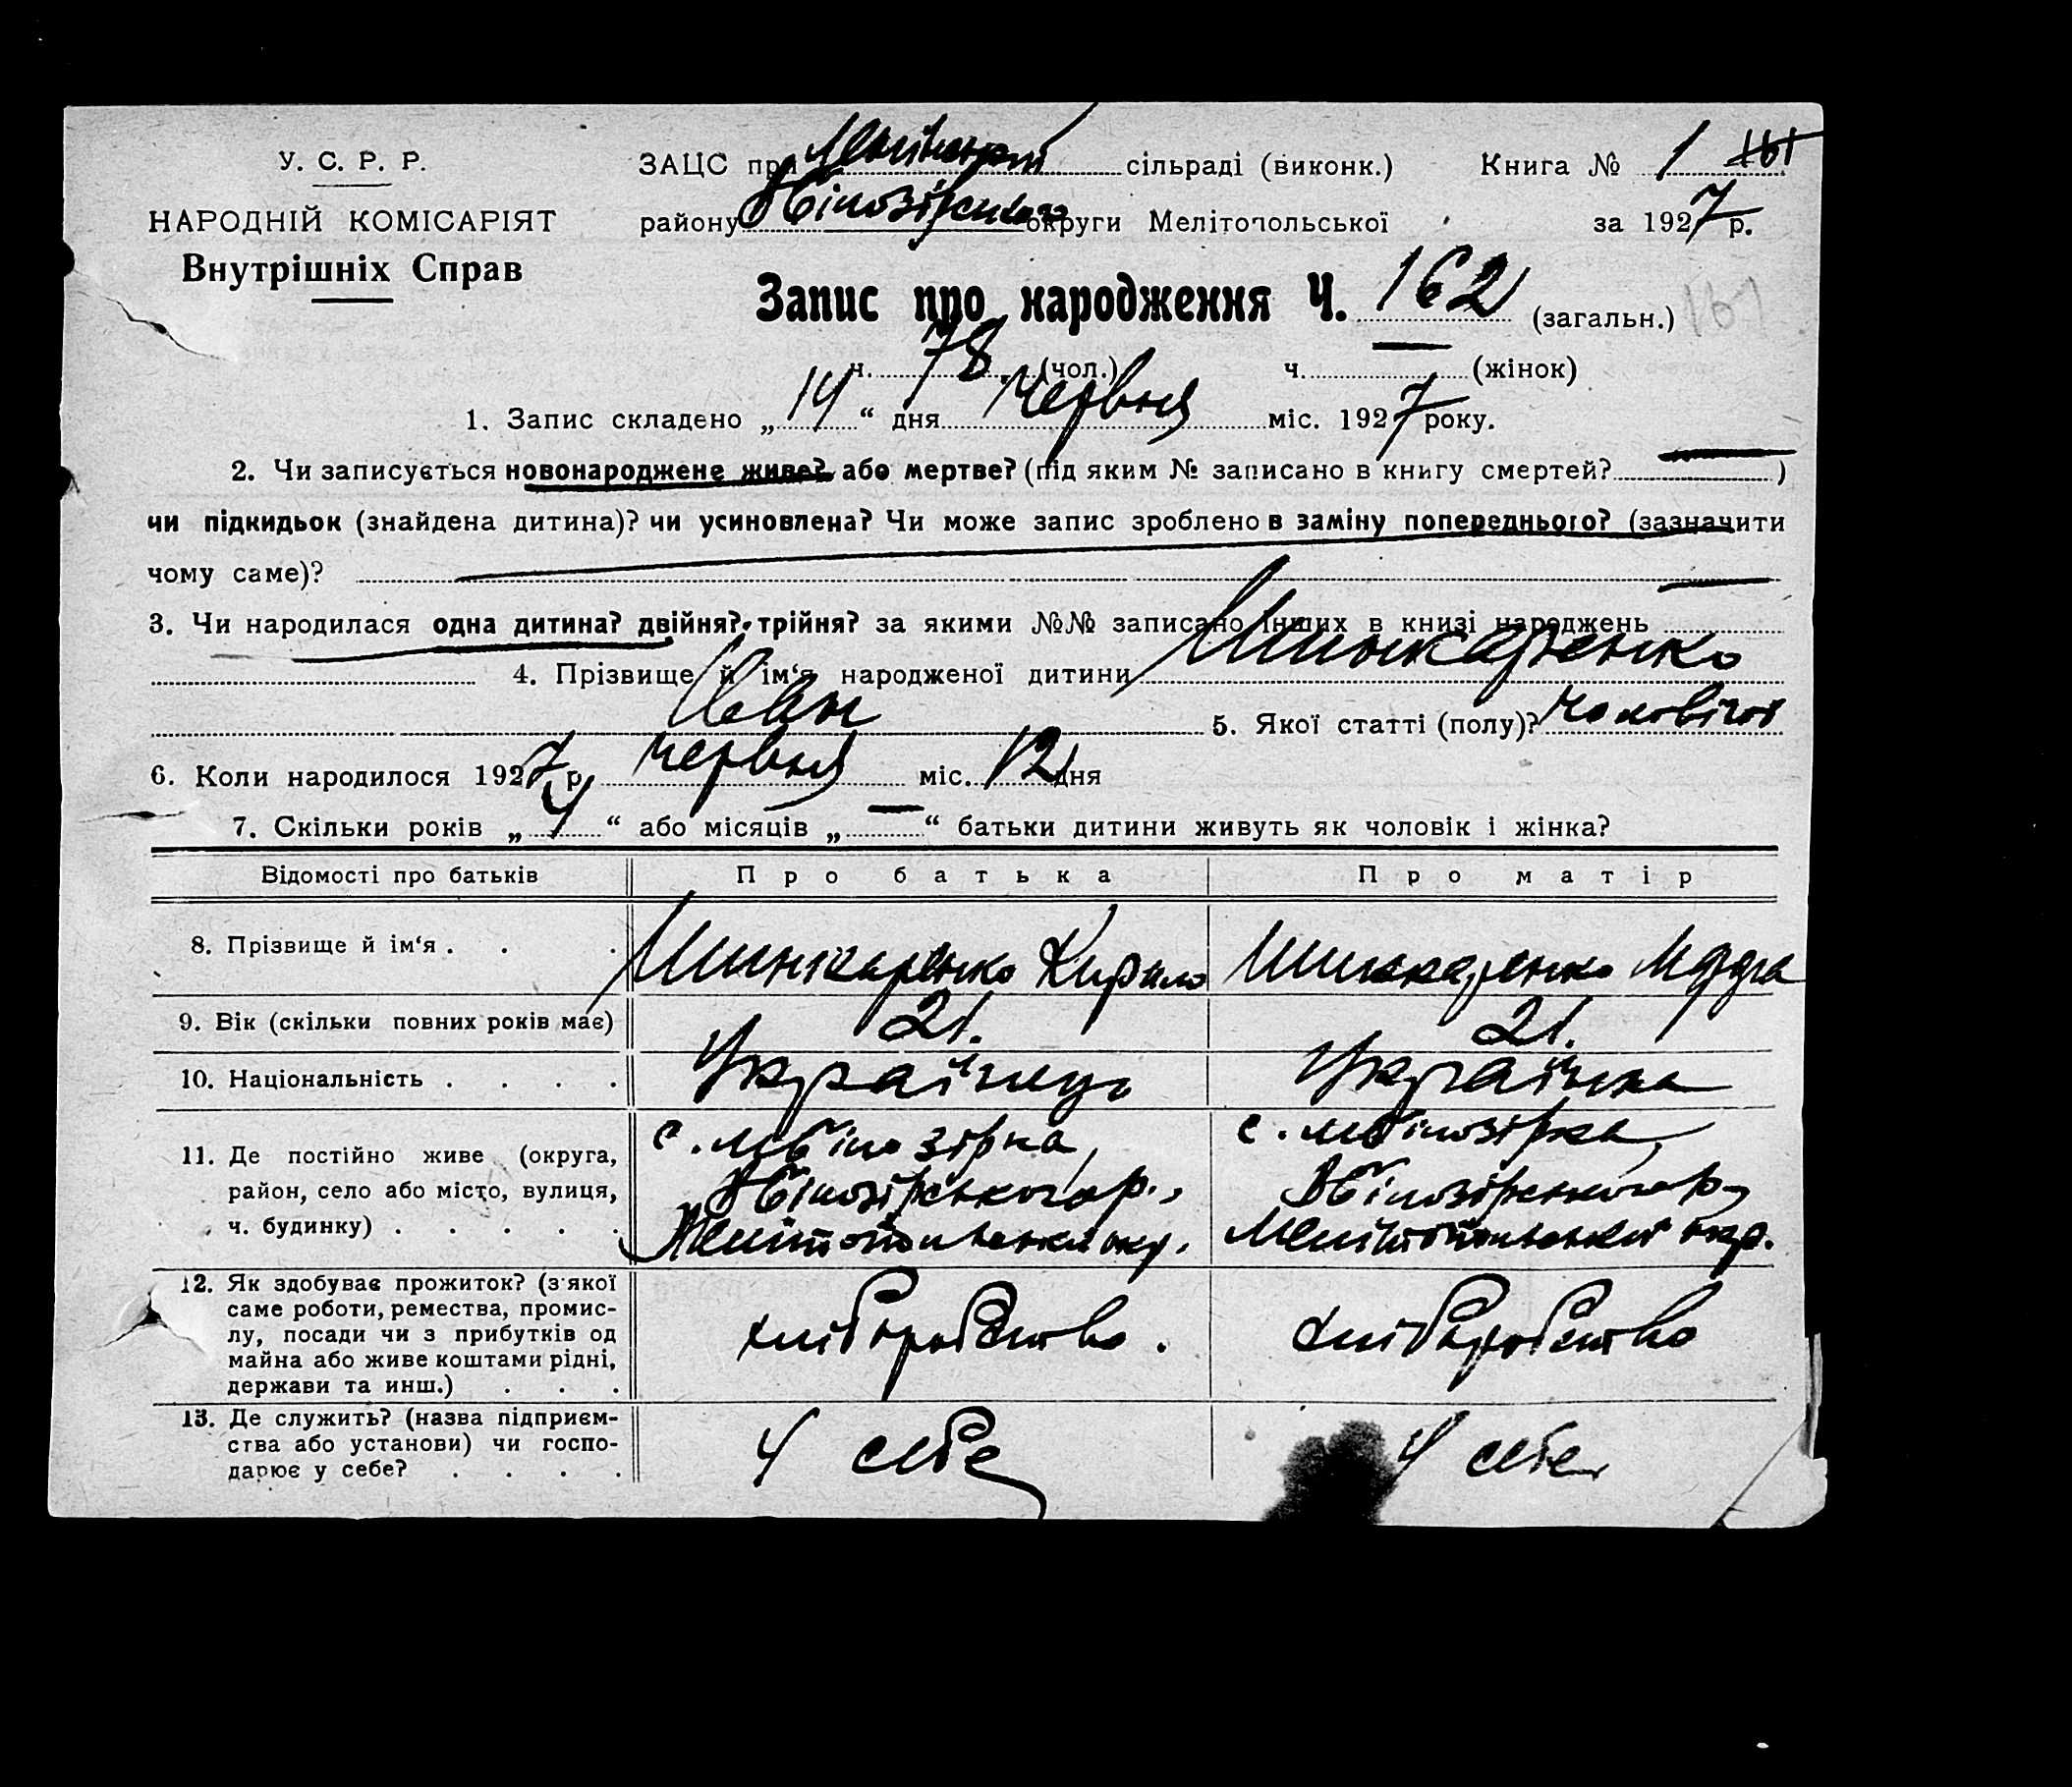 У. С. Р. Р.
НАРОДНІЙ КОМІСАРІЯТ
Внутрішніх Справ
ЗАЦС при сільраді (виконк.) Книга № 1 161
району Білозірського округи Мелітопольської за 1927 р.
Запис про народження Ч. 162 (загальн.) 161
ч. 78 (чол.) ч. — (жінок)
1. Запис складено „14“ дня червня міс. 1927 року.
2. Чи записується новонароджене живе? або мертве? (під яким № записано в книгу смертей? — )
чи підкидьок (знайдена дитина)? чи усиновлена? Чи може запис зроблено в заміну попереднього? (зазначити
чому саме)?
3. Чи народилася одна дитина? двійня? трійня? за якими №№ записано інших в книзі народжень —
4. Прізвище й ім‘я народженої дитини Шинкаренко
Іван 5. Якої статті (полу)? Чоловічої
6. Коли народилося 1927 р. червня міс. 12 дня
7. Скільки років „4“ або місяців „—“ батьки дитини живуть як чоловік і жінка?
Відомості про батьків Про батька Про матір
8. Прізвище й ім‘я . . . Шинкаренко Кирило Шинкаренко
9. Вік (скільки повних років має) 21. 21.
10. Національність . . . . Українець Українка
11. Де постійно живе (округа,
район, село або місто, вулиця,
ч. будинку) . . . . .
с. Мбілозірка,
Білозірського р.,
Мелітопольської окр.
с. Мбілозірка,
Білозірського р.,
Мелітопольської окр.
12. Як здобуває прожиток? (з'якої
саме роботи, ремества, промис-
лу, посади чи з прибутків од
майна або живе коштами рідні,
держави та инш.) . . .
хліборобство.
хліборобство
13. Де служить? (назва підприєм-
ства або установи) чи госпо-
дарює у себе? . . . .
У себе
У себе